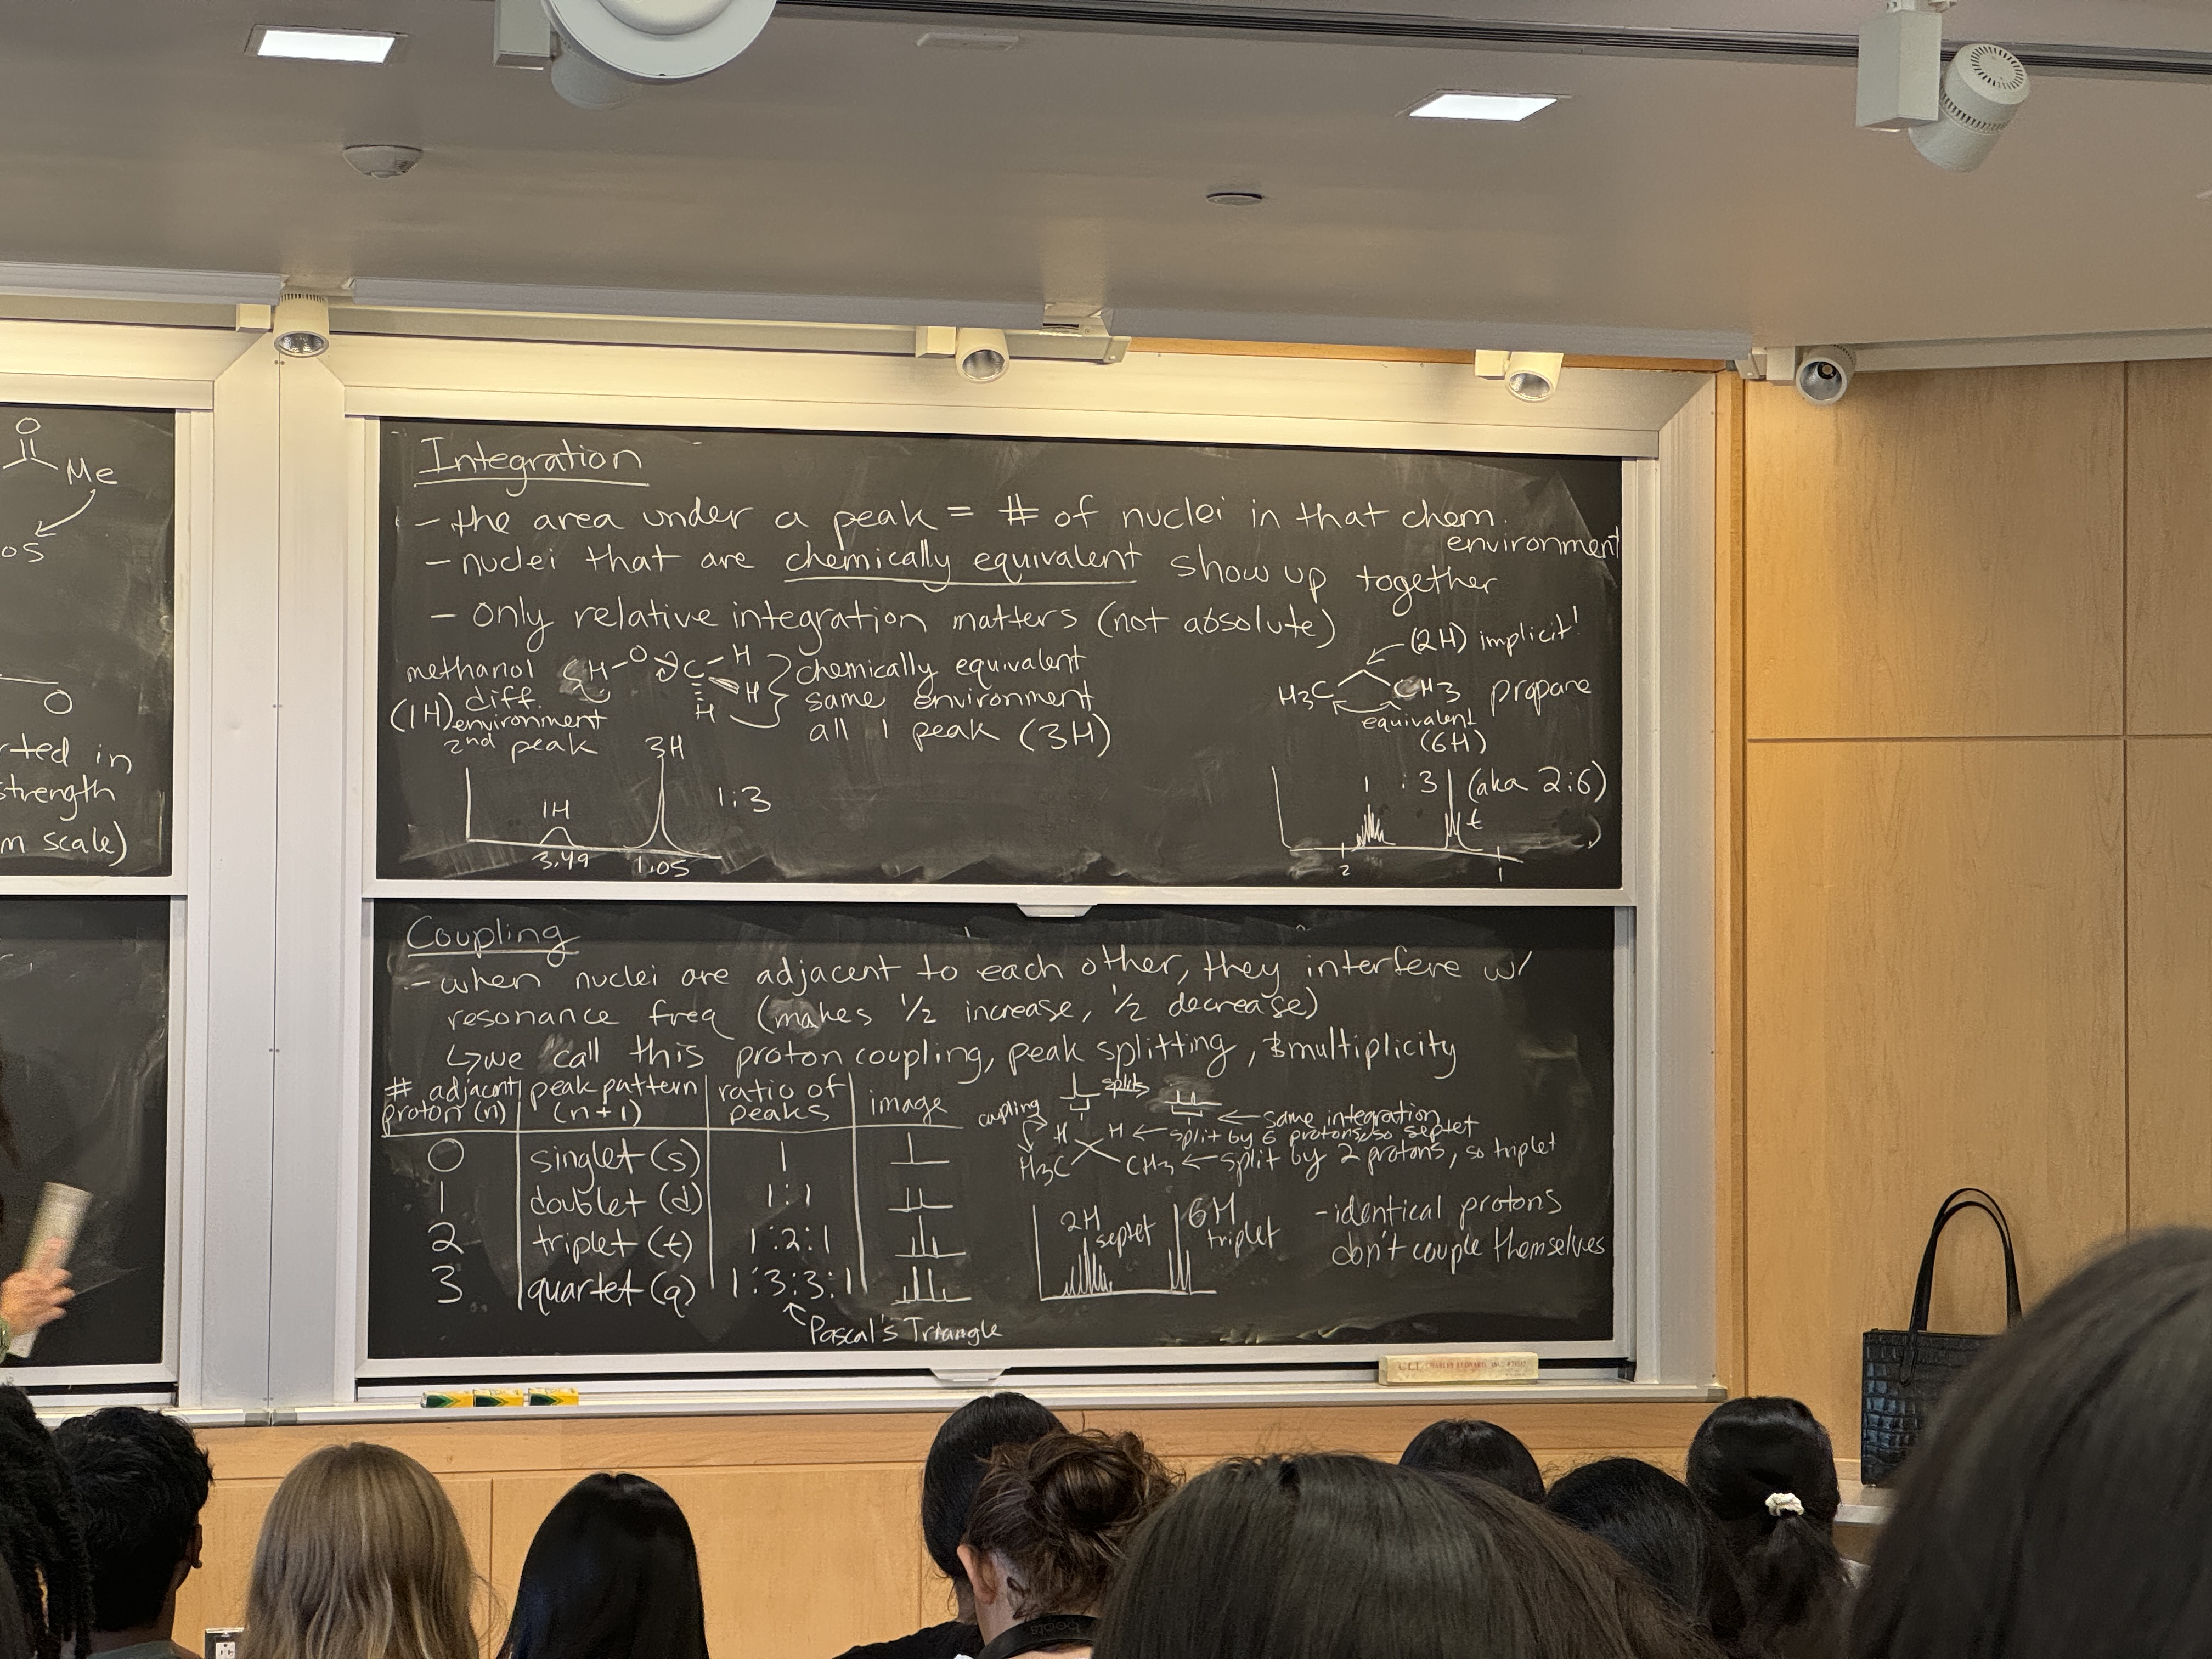 O
Me
os
O
rted in
strength
m scale)
Integration
- the area under a peak = # of nuclei in that chem.
environment
- nuclei that are chemically equivalent show up together
- only relative integration matters (not absolute)
methanol
H-O
C
H
H
H
(1H) diff.
environment
2nd peak
chemically equivalent
same environment
all 1 peak (3H)
(2H) implicit!
H3C
CH3
propane
equivalent
(6H)
3H
1H
1:3
3.49
1.05
1 : 3 (aka 2:6)
t
2
1
Coupling
- when nuclei are adjacent to each other, they interfere w/
resonance freq (makes 1/2 increase, 1/2 decrease)
↳ we call this proton coupling, peak splitting, & multiplicity
# adjacent proton (n) | peak pattern (n+1) | ratio of peaks | image
0 | singlet (s) | 1
1 | doublet (d) | 1:1
2 | triplet (t) | 1:2:1
3 | quartet (q) | 1:3:3:1
Pascal's Triangle
splits
coupling
← same integration
H
H ← split by 6 protons, so septet
H3C
CH3 ← split by 2 protons, so triplet
2H
septet
6H
triplet
- identical protons
don't couple themselves